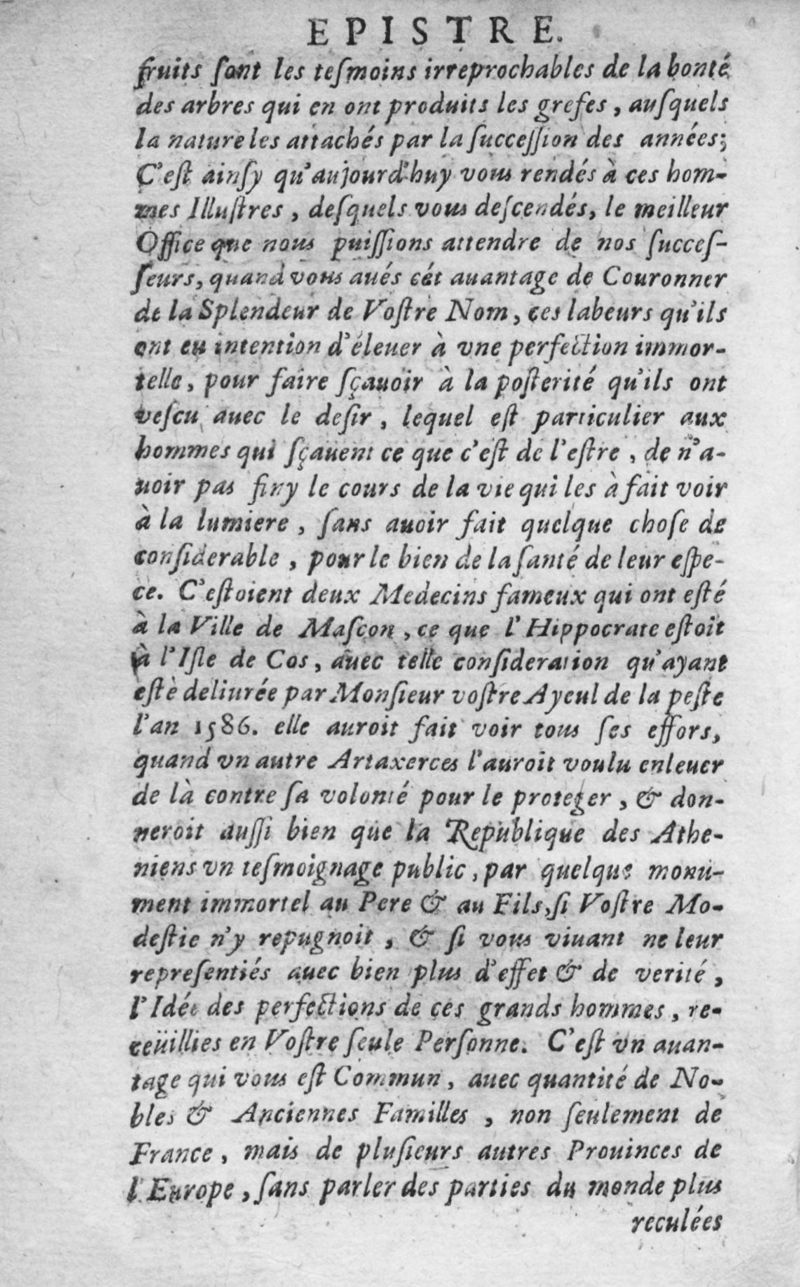 EPISTRE.
fruits sont les tesmoins irreprochables de la bonté
des arbres qui en ont produits les grefes, ausquels
la nature les attachés par la succession des années;
C'est ainsy qu'aujourd'huy vous rendés à ces hom-
mes Illustres, desquels vous descendés, le meilleur
Office que nous puissions attendre de nos succes-
seurs, quand vous aués cét auantage de Couronner
de la Splendeur de Vostre Nom, ces labeurs qu'ils
ont eu intention d'éleuer à vne perfection immor-
telle, pour faire sçauoir à la posterité qu'ils ont
vescu auec le desir, lequel est particulier aux
hommes qui sçauent ce que c'est de l'estre, de n'a-
uoir pas finy le cours de la vie qui les à fait voir
à la lumiere, sans auoir fait quelque chose de
considerable, pour le bien de la santé de leur espe-
ce. C'estoient deux Medecins fameux qui ont esté
à la Ville de Mascon, ce que l'Hippocrate estoit
à l'Isle de Cos, auec telle consideration qu'ayant
estè deliurée par Monsieur vostre Ayeul de la peste
l'an 1586. elle auroit fait voir tous ses effors,
quand vn autre Artaxerces l'auroit voulu enleuer
de là contre sa volonté pour le proteger, & don-
neroit aussi bien que la Republique des Athe-
niens vn tesmoignage public, par quelque monu-
ment immortel au Pere & au Fils, si Vostre Mo-
destie n'y repugnoit, & si vous viuant ne leur
representiés auec bien plus d'effet & de verité,
l'Idée des perfections de ces grands hommes, re-
ceüillies en Vostre seule Personne. C'est vn auan-
tage qui vous est Commun, auec quantité de No-
bles & Anciennes Familles, non seulement de
France, mais de plusieurs autres Prouinces de
l'Europe, sans parler des parties du monde plus
reculées